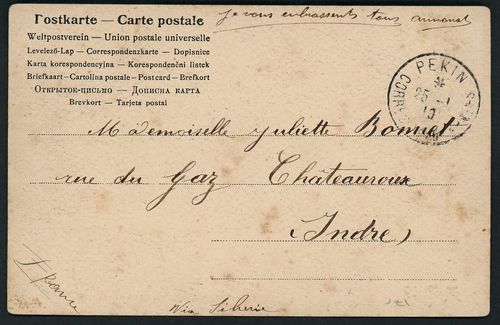 Postkarte — Carte postale
Weltpostverein — Union postale universelle
Levelező-Lap — Correspondenzkarte — Dopisnice
Karta korespondencyjna — Korespondenční listek
Briefkaart — Cartolina postale — Postcard — Brefkort
Открытое-письмо — Дописна карта
Brevkort — Tarjeta postal
je vous embrassent tous
PEKIN
25 -1
10
CORR
Mademoiselle Juliette Bonnet
rue du Gaz Châteauroux
Indre
France
Via Siberie